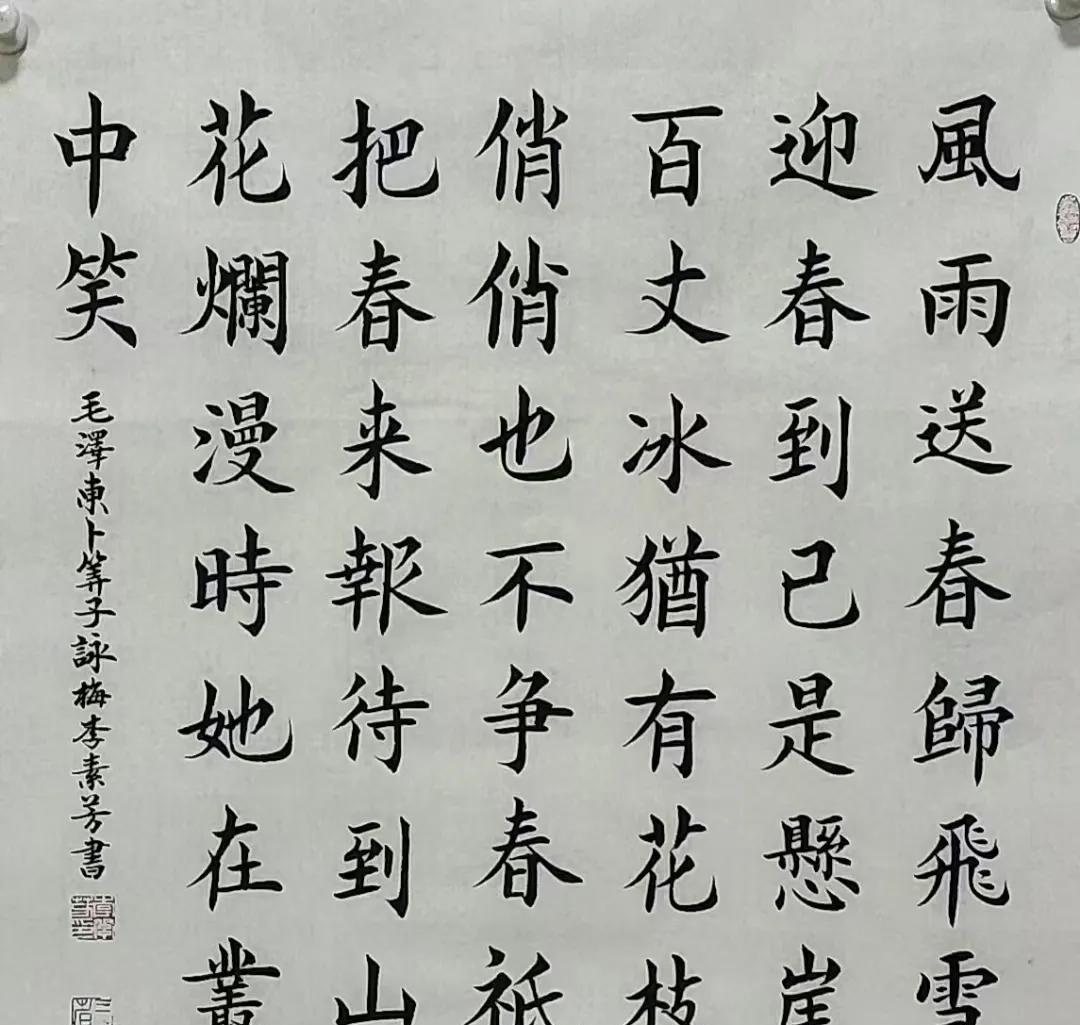 風雨送春歸飛雪
迎春到已是懸崖
百丈冰猶有花枝
俏俏也不争春祇
把春来報待到山
花爛漫時她在叢
中笑
毛澤東卜算子詠梅李素芳書